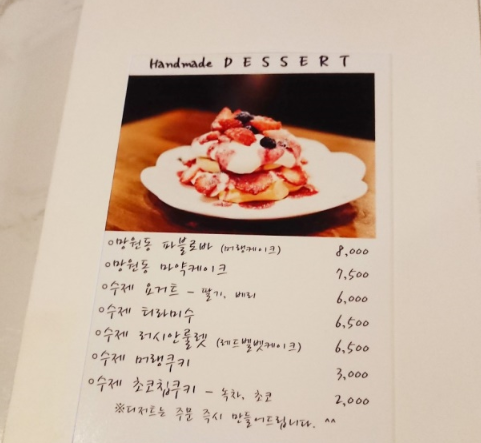 Handmade DESSERT
○망원동 파블로바 (머랭케이크) 8,000
○망원동 마약케이크 7,500
○수제 요거트 - 딸기, 베리 6,000
○수제 티라미수 6,500
○수제 러시안룰렛 (레드벨벳케이크) 6,500
○수제 머랭쿠키 3,000
○수제 초코칩쿠키 - 녹차, 초코 2,000
※디저트는 주문 즉시 만들어드립니다. ^^